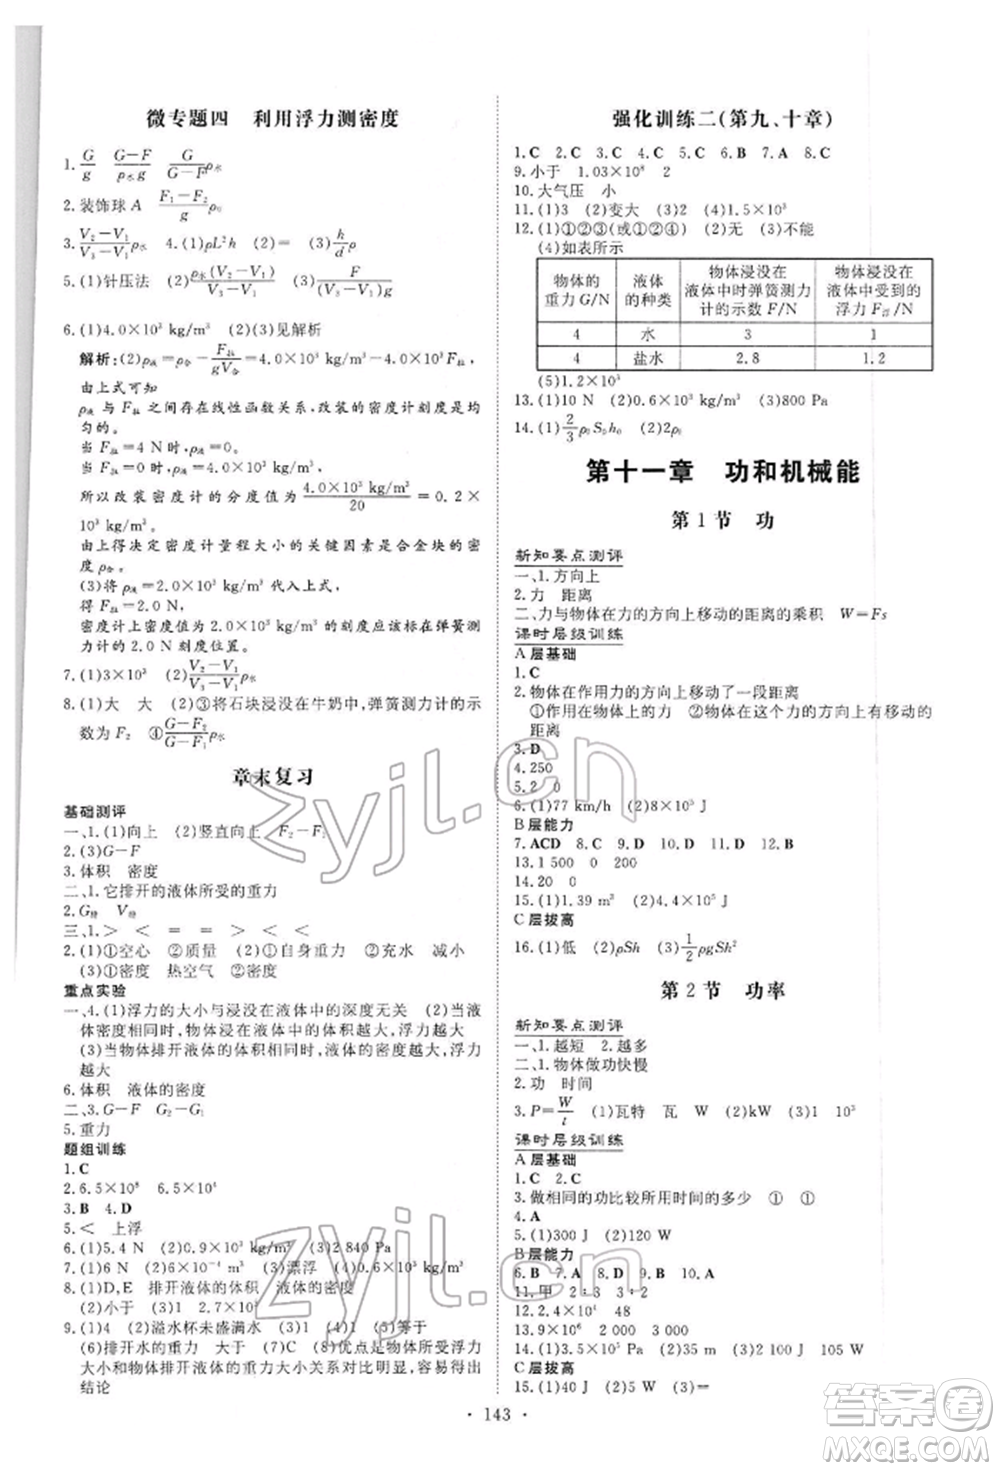 微专题四 利用浮力测密度
1. G/g (G-F)/(ρ水g) G/(G-F)ρ水
2. 装饰球 A (F₁-F₂)/g ρ
3. (V₂-V₁)/(V₃-V₁)ρ水 4. (1)ρL²h (2)= (3)(h/d)ρ
5. (1)针压法 ρ水(V₂-V₁)/(V₃-V₁) (3)F/(V₃-V₁)
6. (1)4.0×10³ kg/m³ (2)(3)见解析
解析:(2)ρ液=ρ合-F拉/(gV合)=4.0×10³-4.0×10³F拉,
由上式可知
ρ液与F拉之间存在线性函数关系,改装的密度计刻度是均
匀的。
当F拉=4 N时,ρ液=0。
当F拉=0时,ρ液=4.0×10³ kg/m³
所以改装密度计的分度值为 4.0×10³ kg/m³/20 = 0.2×
10³ kg/m³。
由上得决定密度计量程大小的关键因素是合金块的密
度ρ合。
(3)将ρ液=2.0×10³ kg/m³代入上式,
得F拉=2.0 N,
密度计上密度值为2.0×10³ kg/m³的刻度应该标在弹簧测
力计的2.0 N刻度位置。
7. (1)3×10³ (2)(V₂-V₁)/(V₃-V₁)ρ水
8. (1)大 大 (2)③将石块浸没在牛奶中,弹簧测力计的示
数为F₂ ④(G-F₂)/(G-F₁)ρ水
章末复习
基础测评
一、1. (1)向上 (2)竖直向上 F₂-F₁
2. (3)G-F
3. 体积 密度
二、1. 它排开的液体所受的重力
2. G排 V排
三、1. > < = = > <
2. (1)①空心 ②质量 (2)①自身重力 ②充水 减小
(3)①密度 热空气 ②密度
重点实验
一、4. (1)浮力的大小与浸没在液体中的深度无关 (2)当液
体密度相同时,物体浸在液体中的体积越大,浮力越大
(3)当物体排开液体的体积相同时,液体的密度越大,浮力
越大
6. 体积 液体的密度
二、3. G-F G₂-G₁
5. 重力
题组训练
1. C
2. 6.5×10⁸ 6.5×10⁴
3. B 4. D
5. < 上浮
6. (1)5.4 N (2)0.9×10³ kg/m³ (3)2 840 Pa
7. (1)6 N (2)6×10⁻⁴ m³ (3)漂浮 (4)
8. (1)D、E 排开液体的体积 液体的密度
(2)小于 (3)1 2.7×10³
9. (1)4 (2)溢水杯未盛满水 (3)1 (5)等于
(6)排开水的重力 大于 (7)C (8)优点是实验中浮力
大小和物体排开液体的重力大小关系对比明显,容易得出
结论
强化训练二(第九、十章)
1. C 2. C 3. C 4. C 5. C 6. B 7. A 8. C
9. 小于 1.03×10⁸ 2
10. 大气压 小
11. (1)3 (2)变大 (3)2 (4)1.5×10³
12. (1)①②③(或①②④) (2)无 (3)不能
(4)如表所示
物体的重力G/N 液体的种类 物体浸没在液体中时弹簧测力计的示数F/N 物体浸没在液体中受到的浮力F浮/N
4 水 3 1
4 盐水 2.8 1.2
(5)1.2×10³
13. (1)10 N (2)0.6×10³ kg/m³ (3)800 Pa
14. (1)(2/3)ρ₀S₀h₀ (2)2ρ₀
第十一章 功和机械能
第1节 功
新知要点测评
一、1. 方向上
2. 力 距离
二、力与物体在力的方向上移动的距离的乘积 W=Fs
课时层级训练
A层基础
1. C
2. 物体在作用力的方向上移动了一段距离
①作用在物体上的力 ②物体在这个力的方向上有移动的
距离
3. D
4. 250
5. 2 0
6. (1)77 km/h (2)8×10⁵ J
B层能力
7. ACD 8. C 9. D 10. D 11. D 12. B
13. 1 500 0 200
14. 20 0
15. (1)1.39 m² (2)4.4×10⁵ J
C层拔高
16. (1)低 (2)ρSh (3)½ρgSh²
第2节 功率
新知要点测评
一、1. 越短 2. 越多
二、1. 物体做功快慢
2. 功 时间
3. P=W/t (1)瓦特 瓦 W (2)kW (3)1 10³
课时层级训练
A层基础
1. C 2. C
3. 做相同的功比较所用时间的多少 ① ①
4. A
5. (1)300 J (2)120 W
B层能力
6. B 7. A 8. D 9. B 10. D
11. 甲 2∶3 2∶1
12. 2.4×10⁴ 48
13. 9×10⁶ 2 000 3 000
14. (1)3.5×10⁵ Pa (2)15 m/s (3)
C层拔高
15. (1)40 J (2)20 W (3)=
· 143 ·
zyjl.cn
zyjl.cn
答案圈
MXQE.COM